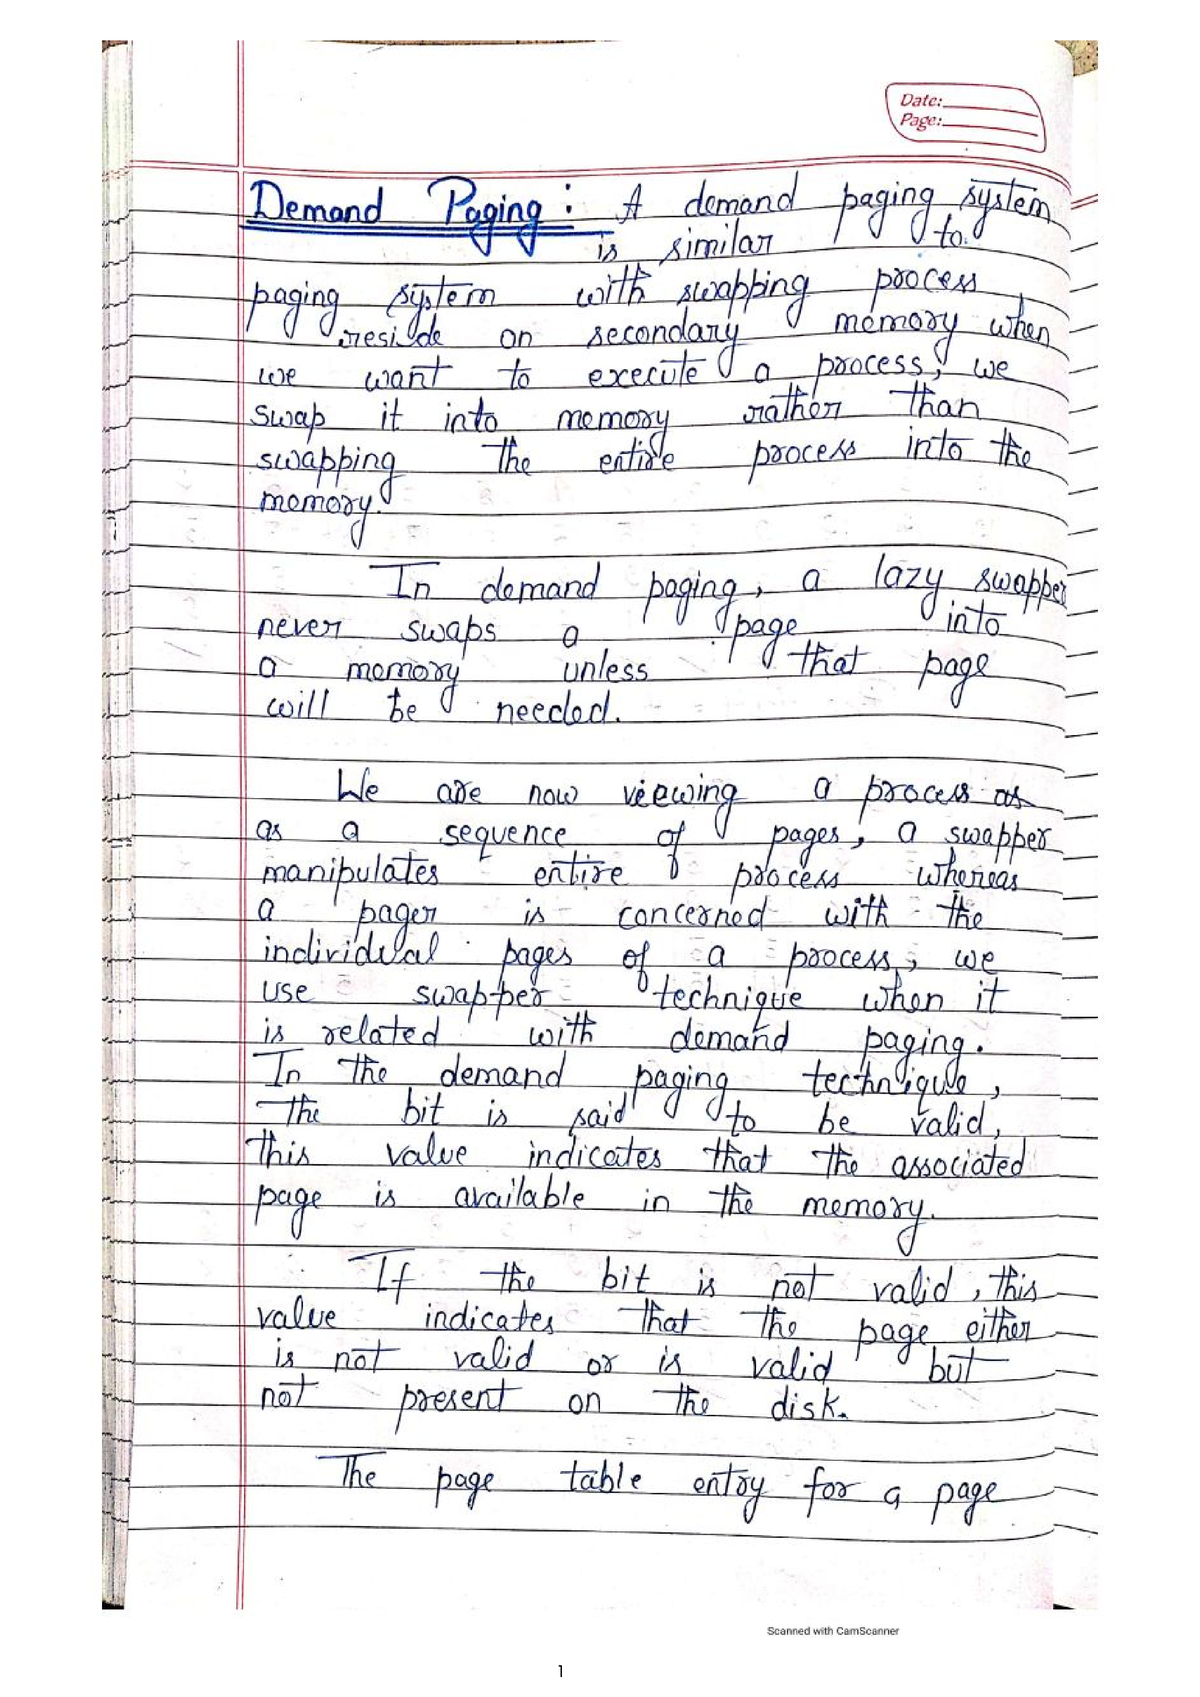 Date:
Page:
Demand Paging: A demand paging system
is similar to
paging system with swapping process
reside on secondary memory when
we want to execute a process, we
swap it into memory rather than
swapping the entire process into the
memory.
In demand paging, a lazy swapper
never swaps a page into
a memory unless that page
will be needed.
We are now viewing a process as
as a sequence of pages, a swapper
manipulates entire process whereas
a pager is concerned with the
individual pages of a process, we
use swapper technique when it
is related with demand paging.
In the demand paging technique,
the bit is said to be valid,
this value indicates that the associated
page is available in the memory.
If the bit is not valid, this
value indicates that the page either
is not valid or is valid but
not present on the disk.
The page table entry for a page
Scanned with CamScanner
1